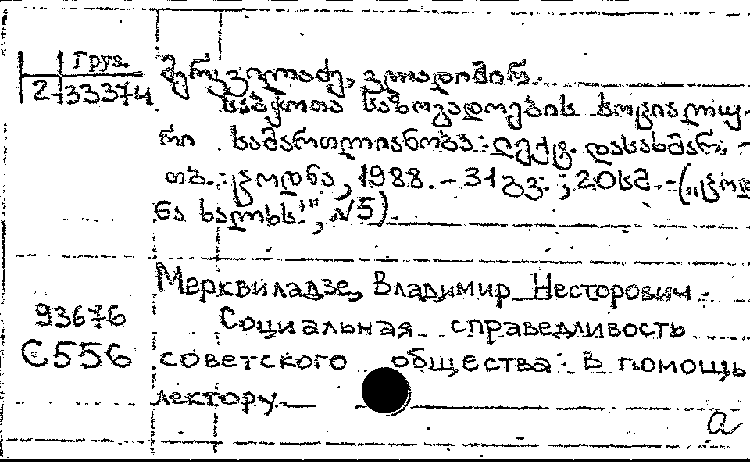 Груз.
2-33374
მერკვილაძე, ვლადიმირ.
საბჭოთა საზოგადოების სოციალუ-
რი სამართლიანობა: ლექტ. დასახმარ. -
თბ.: ცოდნა, 1988. - 31 გვ.; 20 სმ. - („ცოდ
ნა ხალხს!", №5).
Мерквиладзе, Владимир Несторович.
93676
Социальная справедливость
С556
советского общества: В помощь
лектору.
а